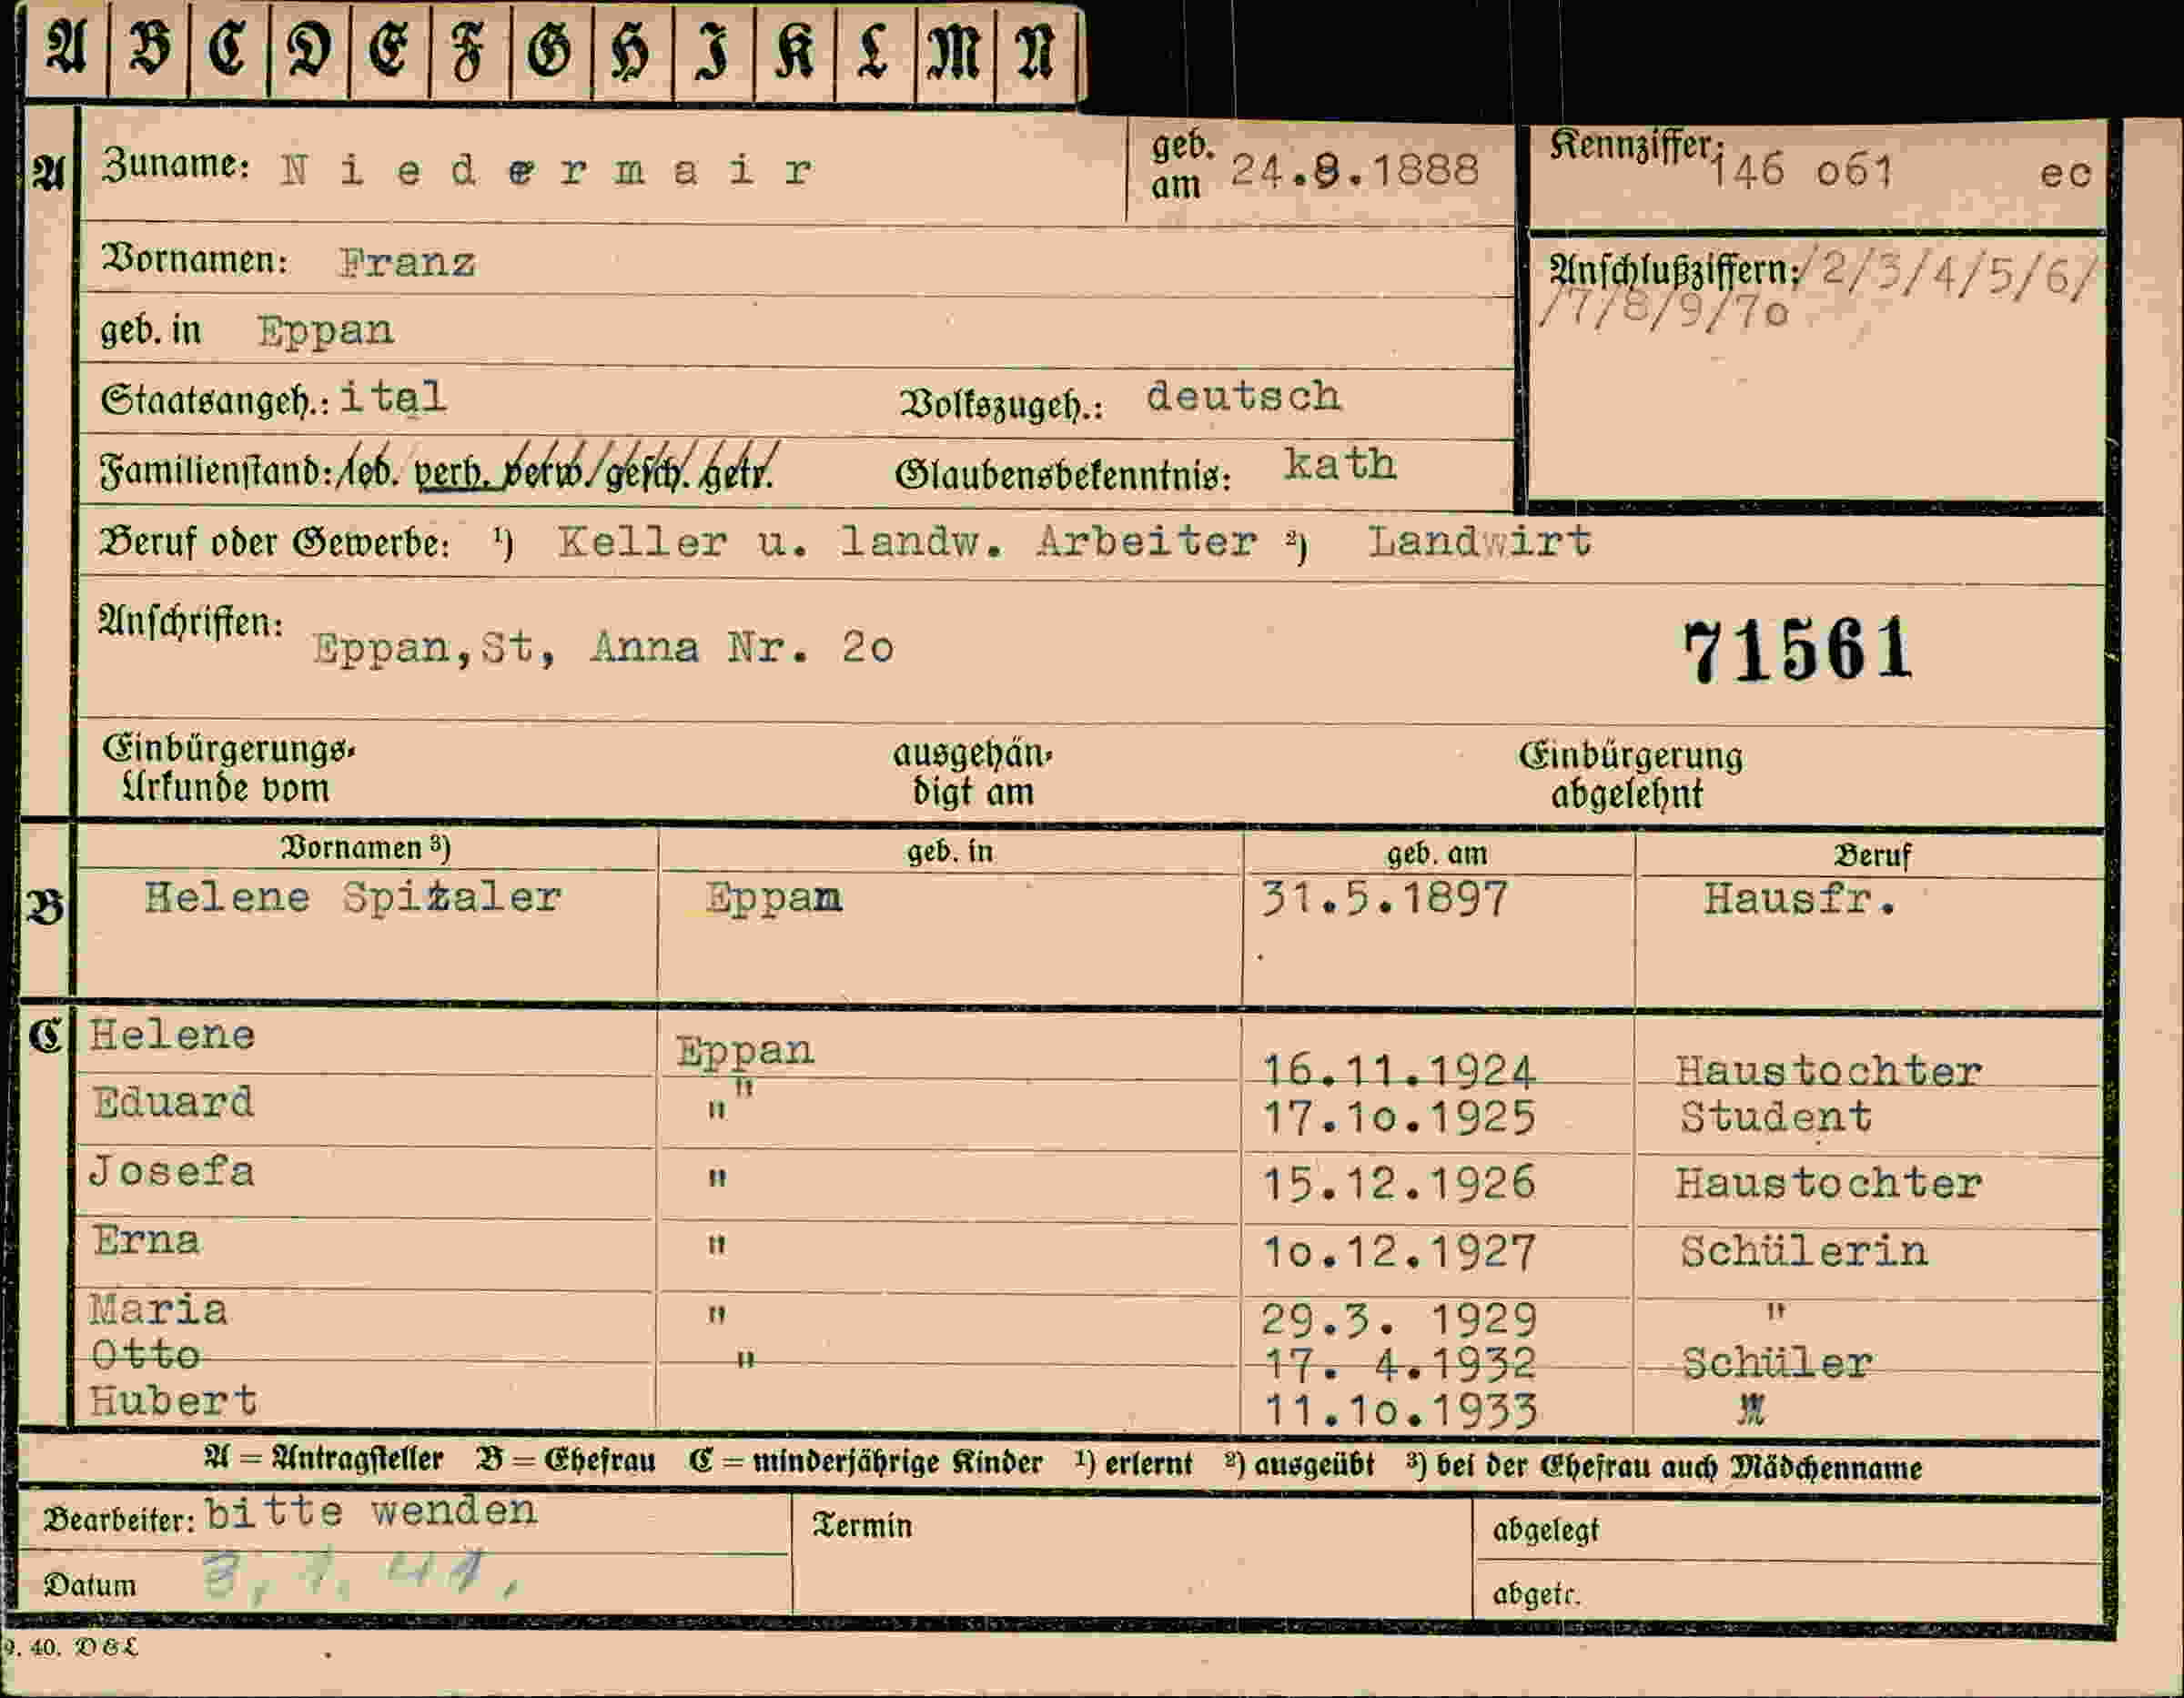 A B C D E F G H I K L M N
A Zuname: Niedermair geb. am 24.9.1888 Kennziffer: 146 o61 ec
Vornamen: Franz Anschlußziffern: /2/3/4/5/6/
/7/8/9/7o
geb. in Eppan
Staatsangeh.: ital Volkszugeh.: deutsch
Familienstand: led. verh. verw. gesch. getr. Glaubensbekenntnis: kath
Beruf oder Gewerbe: ¹) Keller u. landw. Arbeiter ²) Landwirt
Anschriften: Eppan,St, Anna Nr. 2o 71561
Einbürgerungs- ausgehän- Einbürgerung
Urkunde vom digt am abgelehnt
Vornamen ³) geb. in geb. am Beruf
B Helene Spitaler Eppan 31.5.1897 Hausfr.
C Helene Eppan 16.11.1924 Haustochter
"
Eduard " 17.1o.1925 Student
Josefa " 15.12.1926 Haustochter
Erna " 1o.12.1927 Schülerin
Maria " 29.3. 1929 "
Otto " 17. 4.1932 Schüler
Hubert 11.1o.1933
A = Antragsteller B = Ehefrau C = minderjährige Kinder ¹) erlernt ²) ausgeübt ³) bei der Ehefrau auch Mädchenname
Bearbeiter: bitte wenden Termin abgelegt
Datum 3, 1. 41, abgetr.
9. 40. D & L